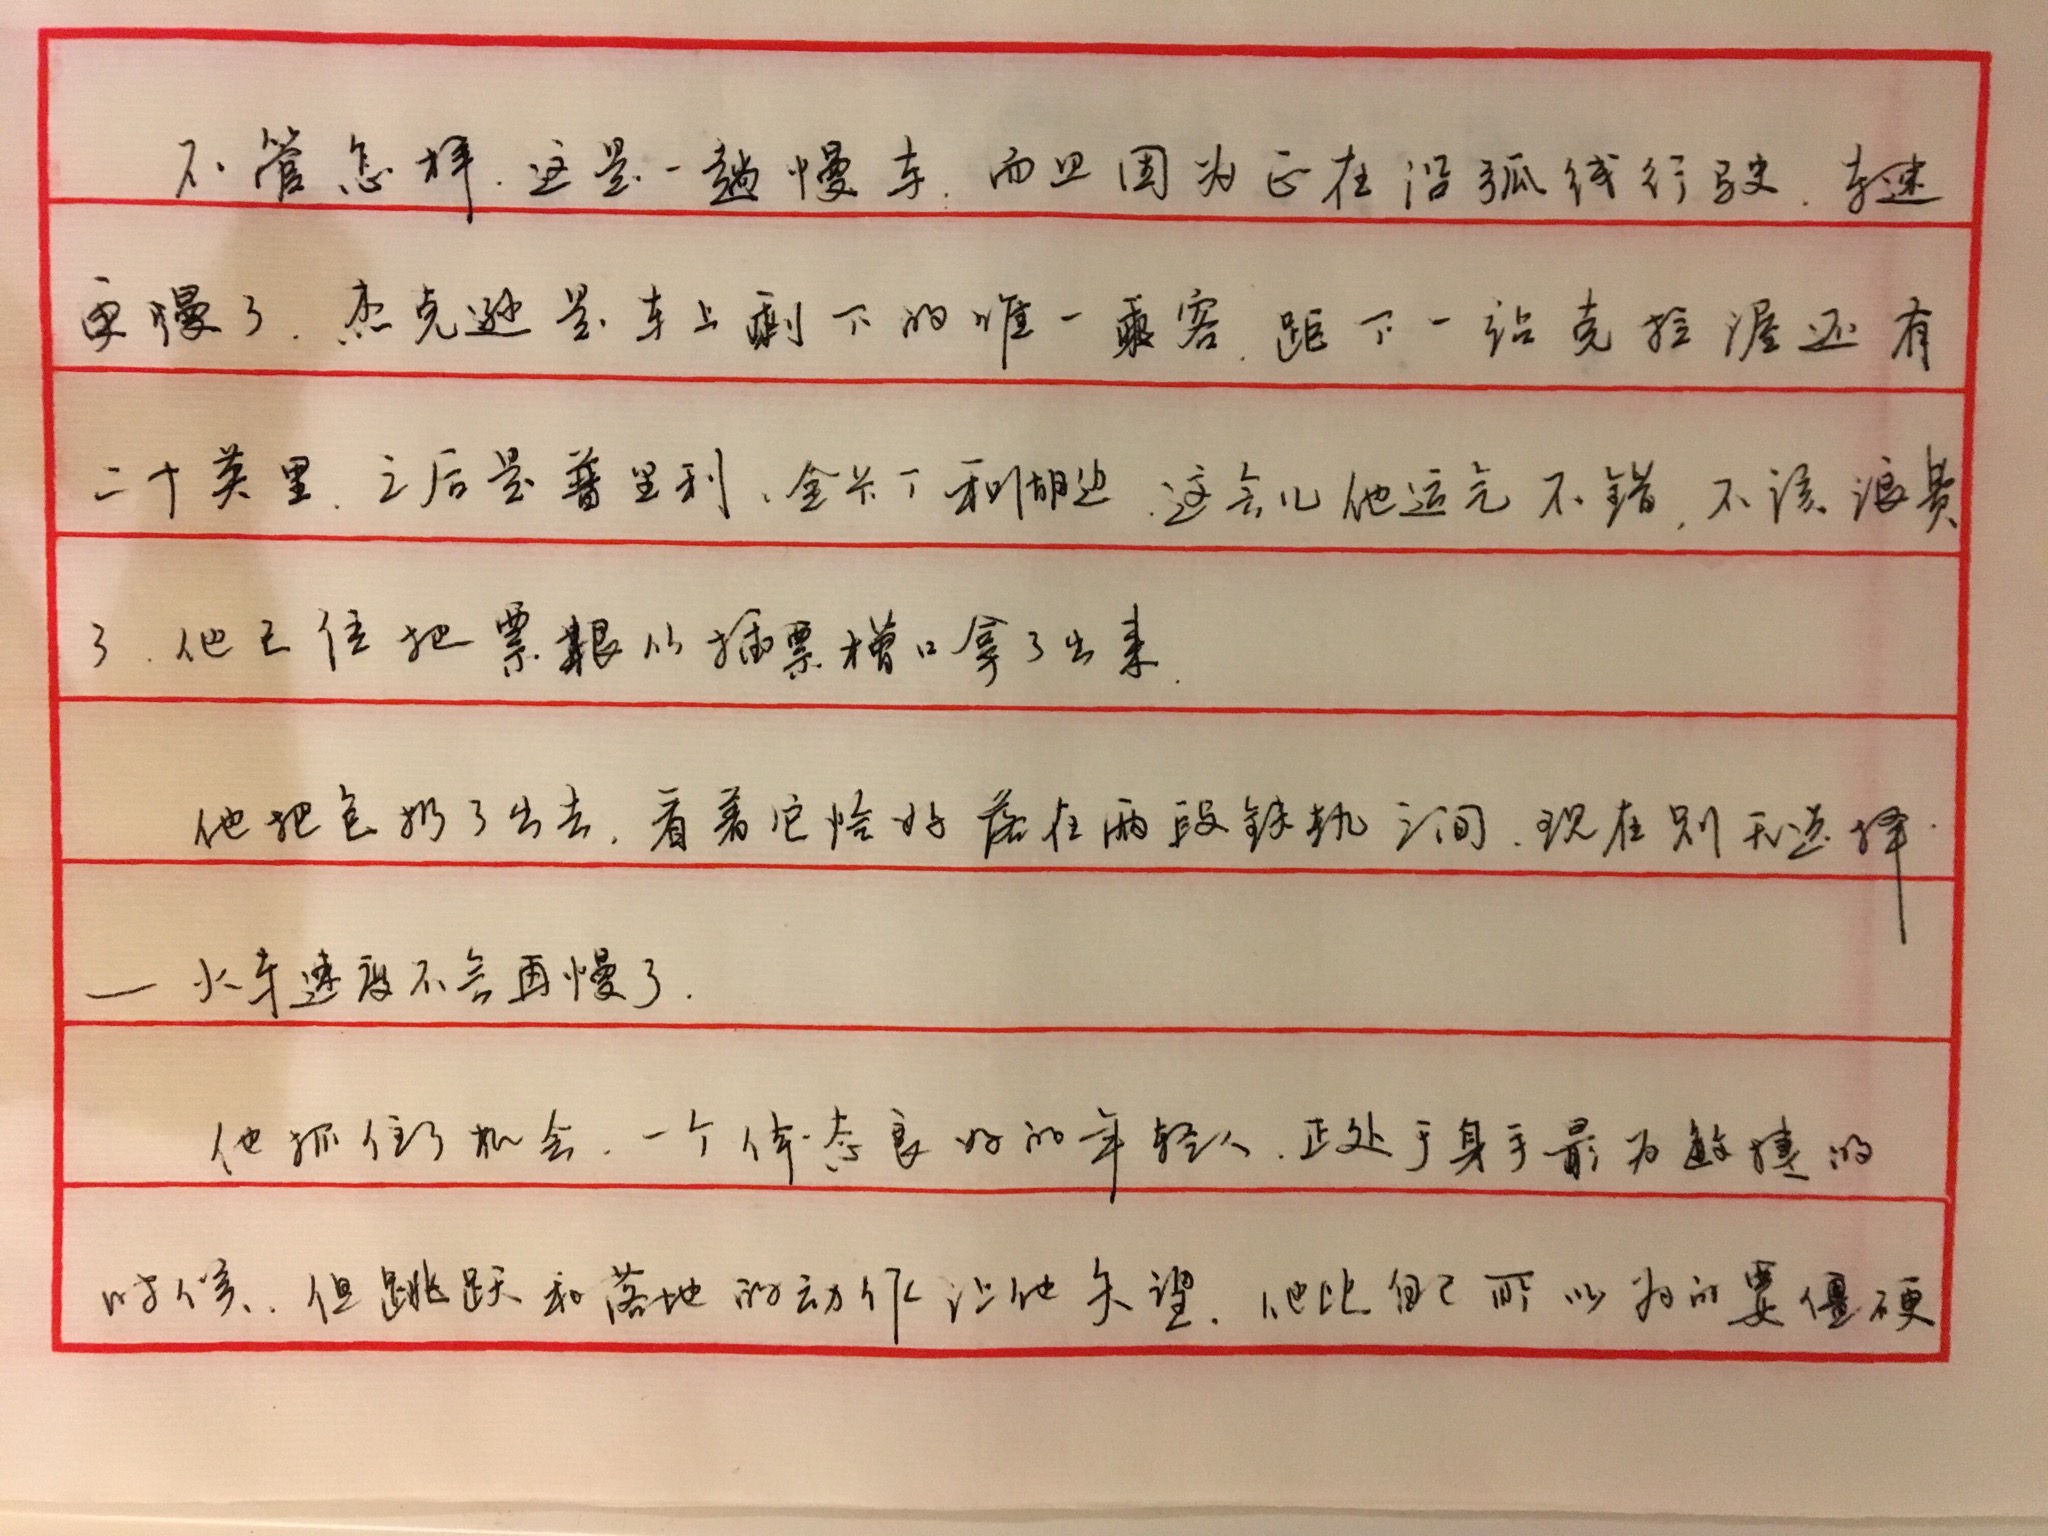 不管怎样，这是一趟慢车，而且因为正在沿弧线行驶，车速
更慢了。杰克逊是车上剩下的唯一乘客，距下一站克拉渥还有
二十英里，之后是普里利、金卡丁和湖边。这会儿他运气不错，不该浪费
了。他已经把票根从插票槽口拿了出来。
他把包扔了出去，看着它恰好落在两段铁轨之间。现在别无选择
—火车速度不会再慢了。
他抓住了机会。一个体态良好的年轻人，正处于身手最为敏捷的
时候。但跳跃和落地的动作让他失望，他比自己所以为的要僵硬